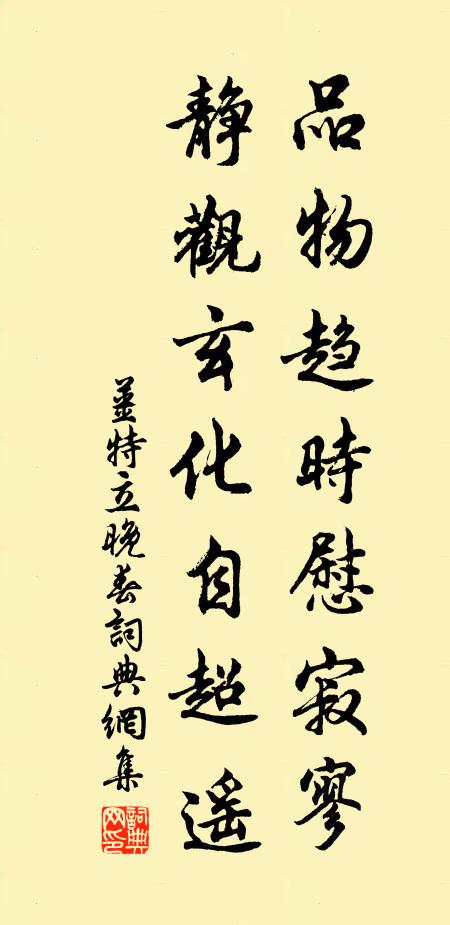 品物趋時慰寂寥
静觀玄化自超遥
姜特立晚春詞典網集
詞典网印